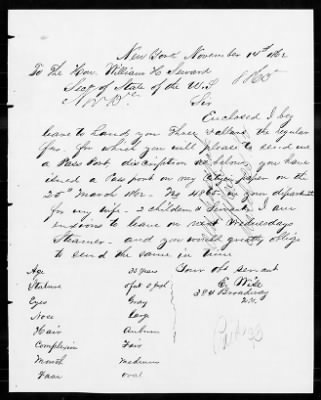 New York November 14th 1862
To The Hon. William H Seward
8865
Secy of State of the U.S
Nov 15th
Sir
Enclosed I beg
leave to hand you Three Dollars the regular
fees. for which you will please to send me
a Pass Port, discription as below, you have
issued a Passport on my Citizen paper on the
25th March 1862. No 4865 in your department
for my wife. 2 children & Servant. I am
anxious to leave on next Wednesdays
Steamer. and you would greatly oblige
to send the same in time
Your obt servant
E. Wise
384 Broadway
N.Y.
Age 32 years
Stature 5 feet 8 feet
Eyes Gray
Nose Large
Hair Auburn
Complexion Fair
Mouth medium
Face oval